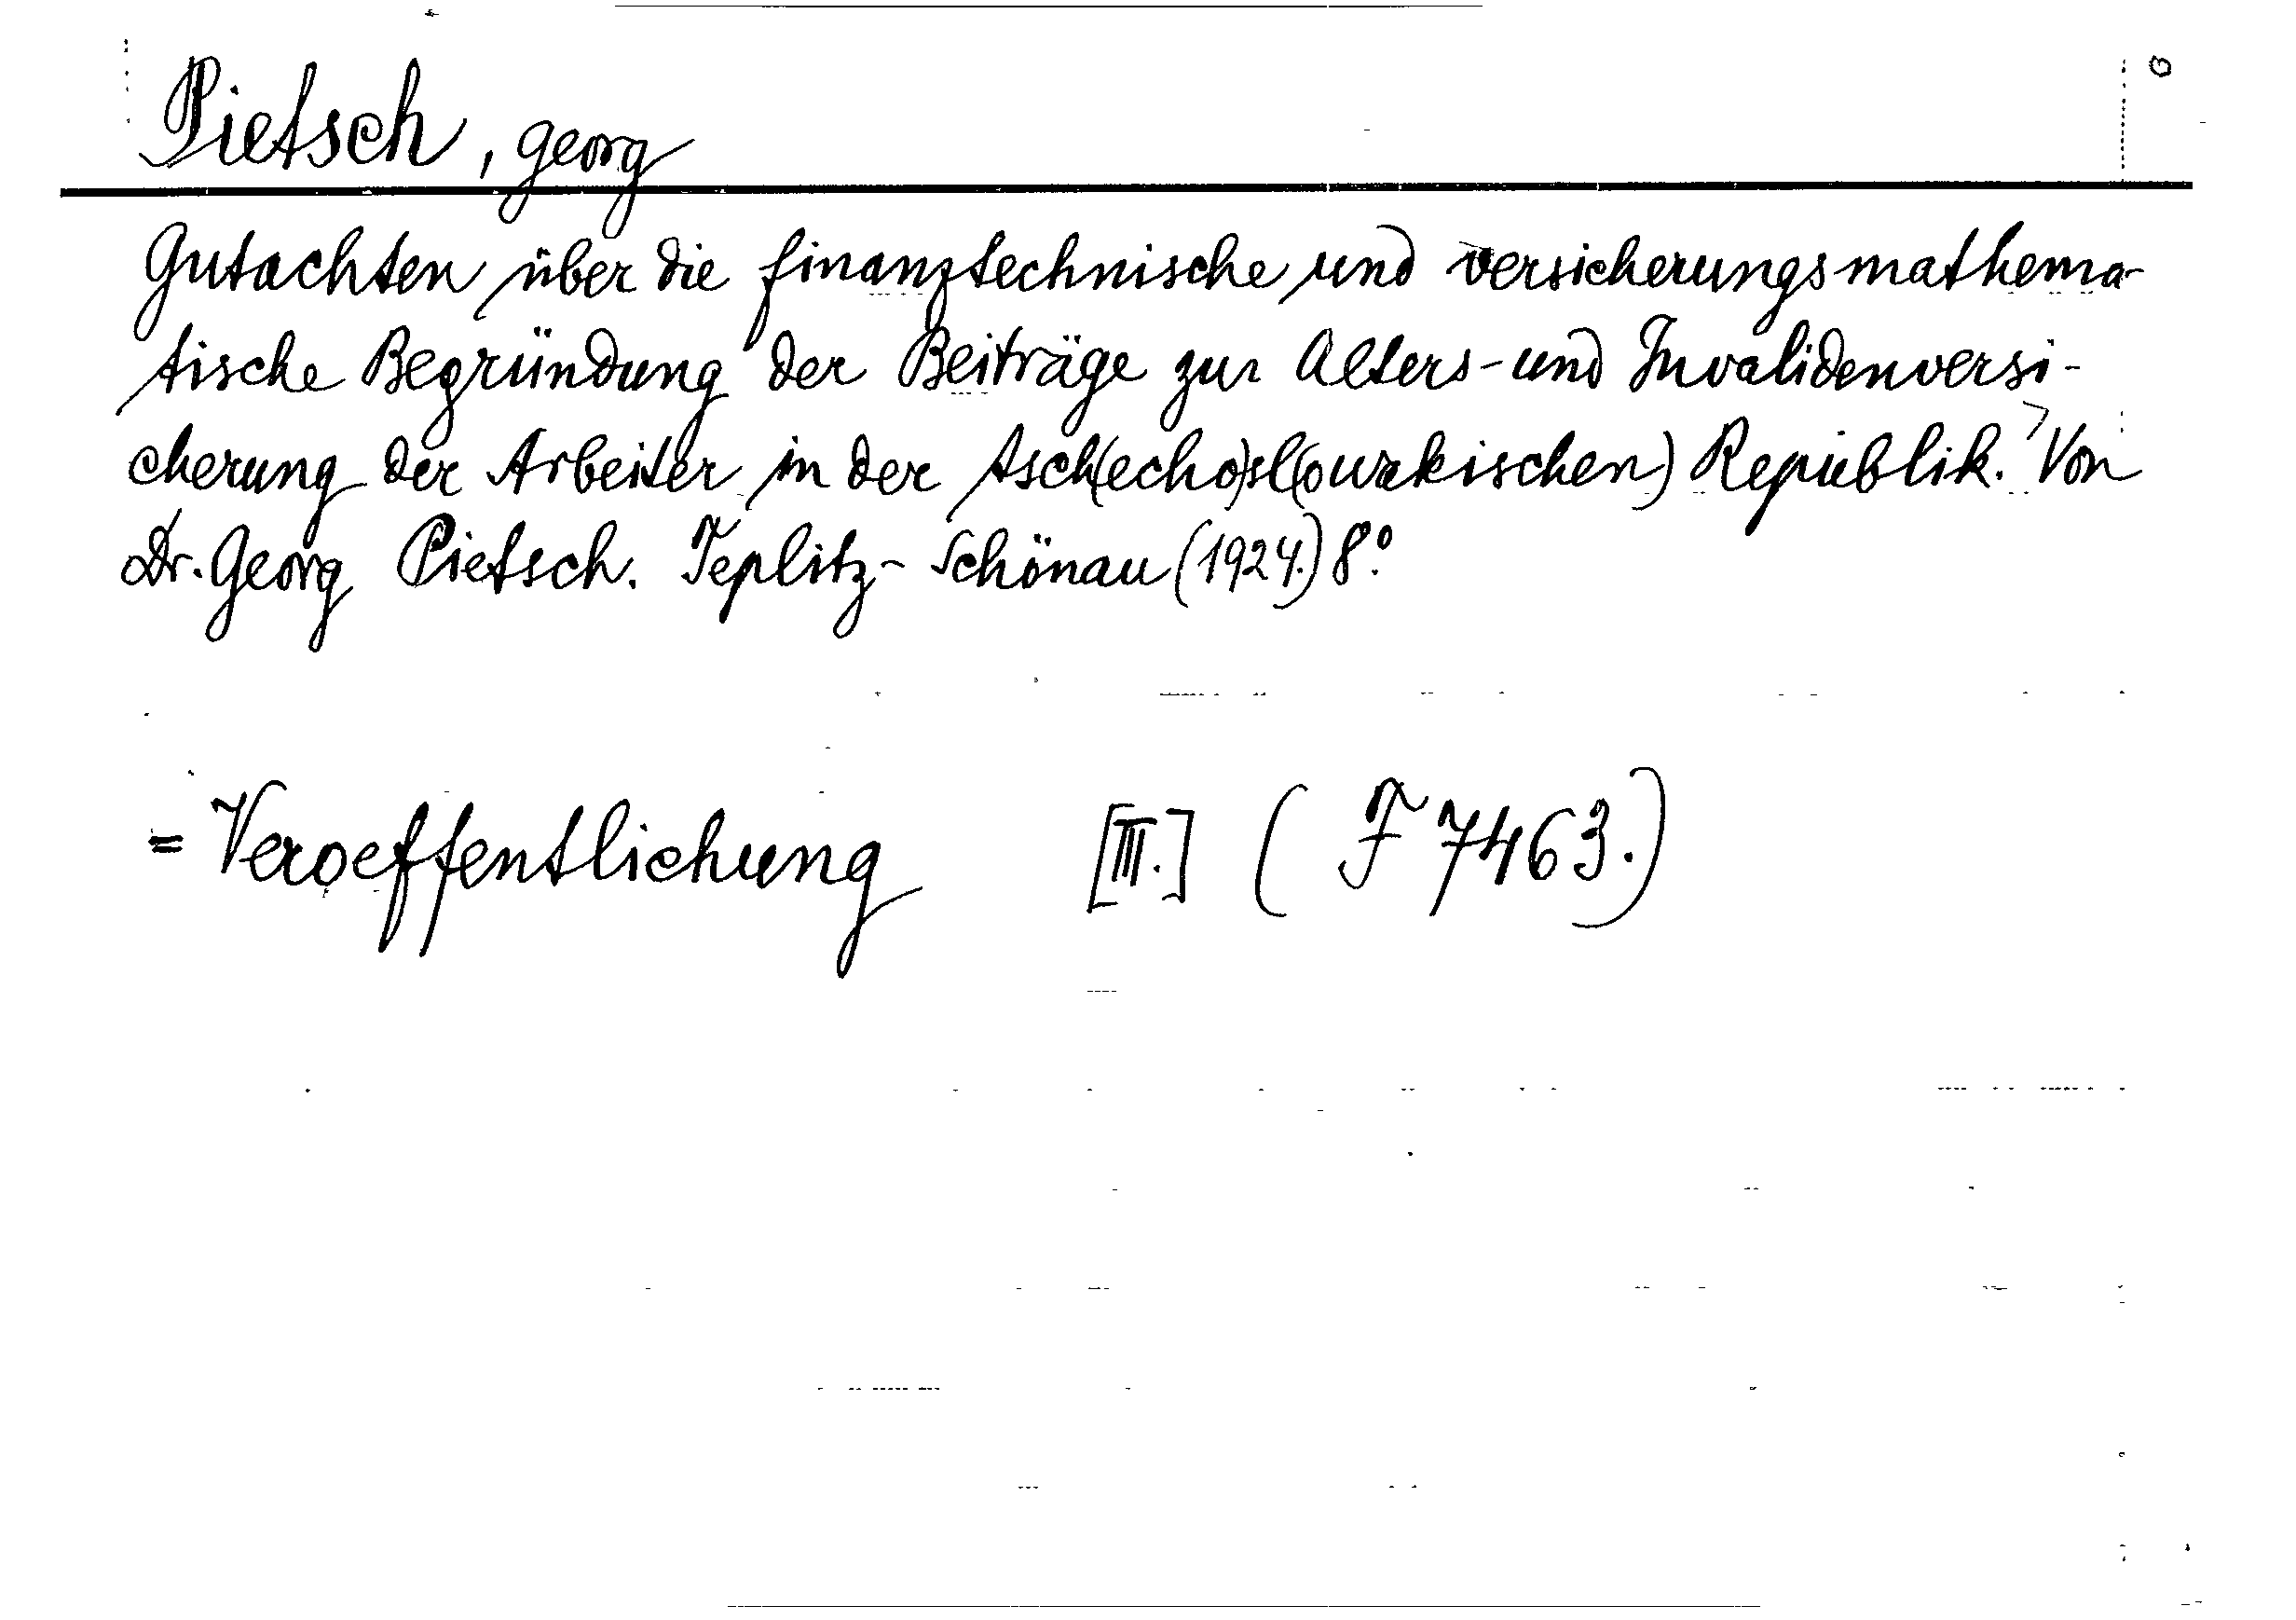 Pietsch, Georg
Gutachten über die finanztechnische und versicherungsmathema-
tische Begründung der Beiträge zur Alters- und Invalidenversi-
cherung der Arbeiter in der tsch(echo)sl(owakischen) Republik. Von
Dr. Georg Pietsch. Teplitz-Schönau (1924.) 8º.
= Veroeffentlichung [III.] (F 7463.)